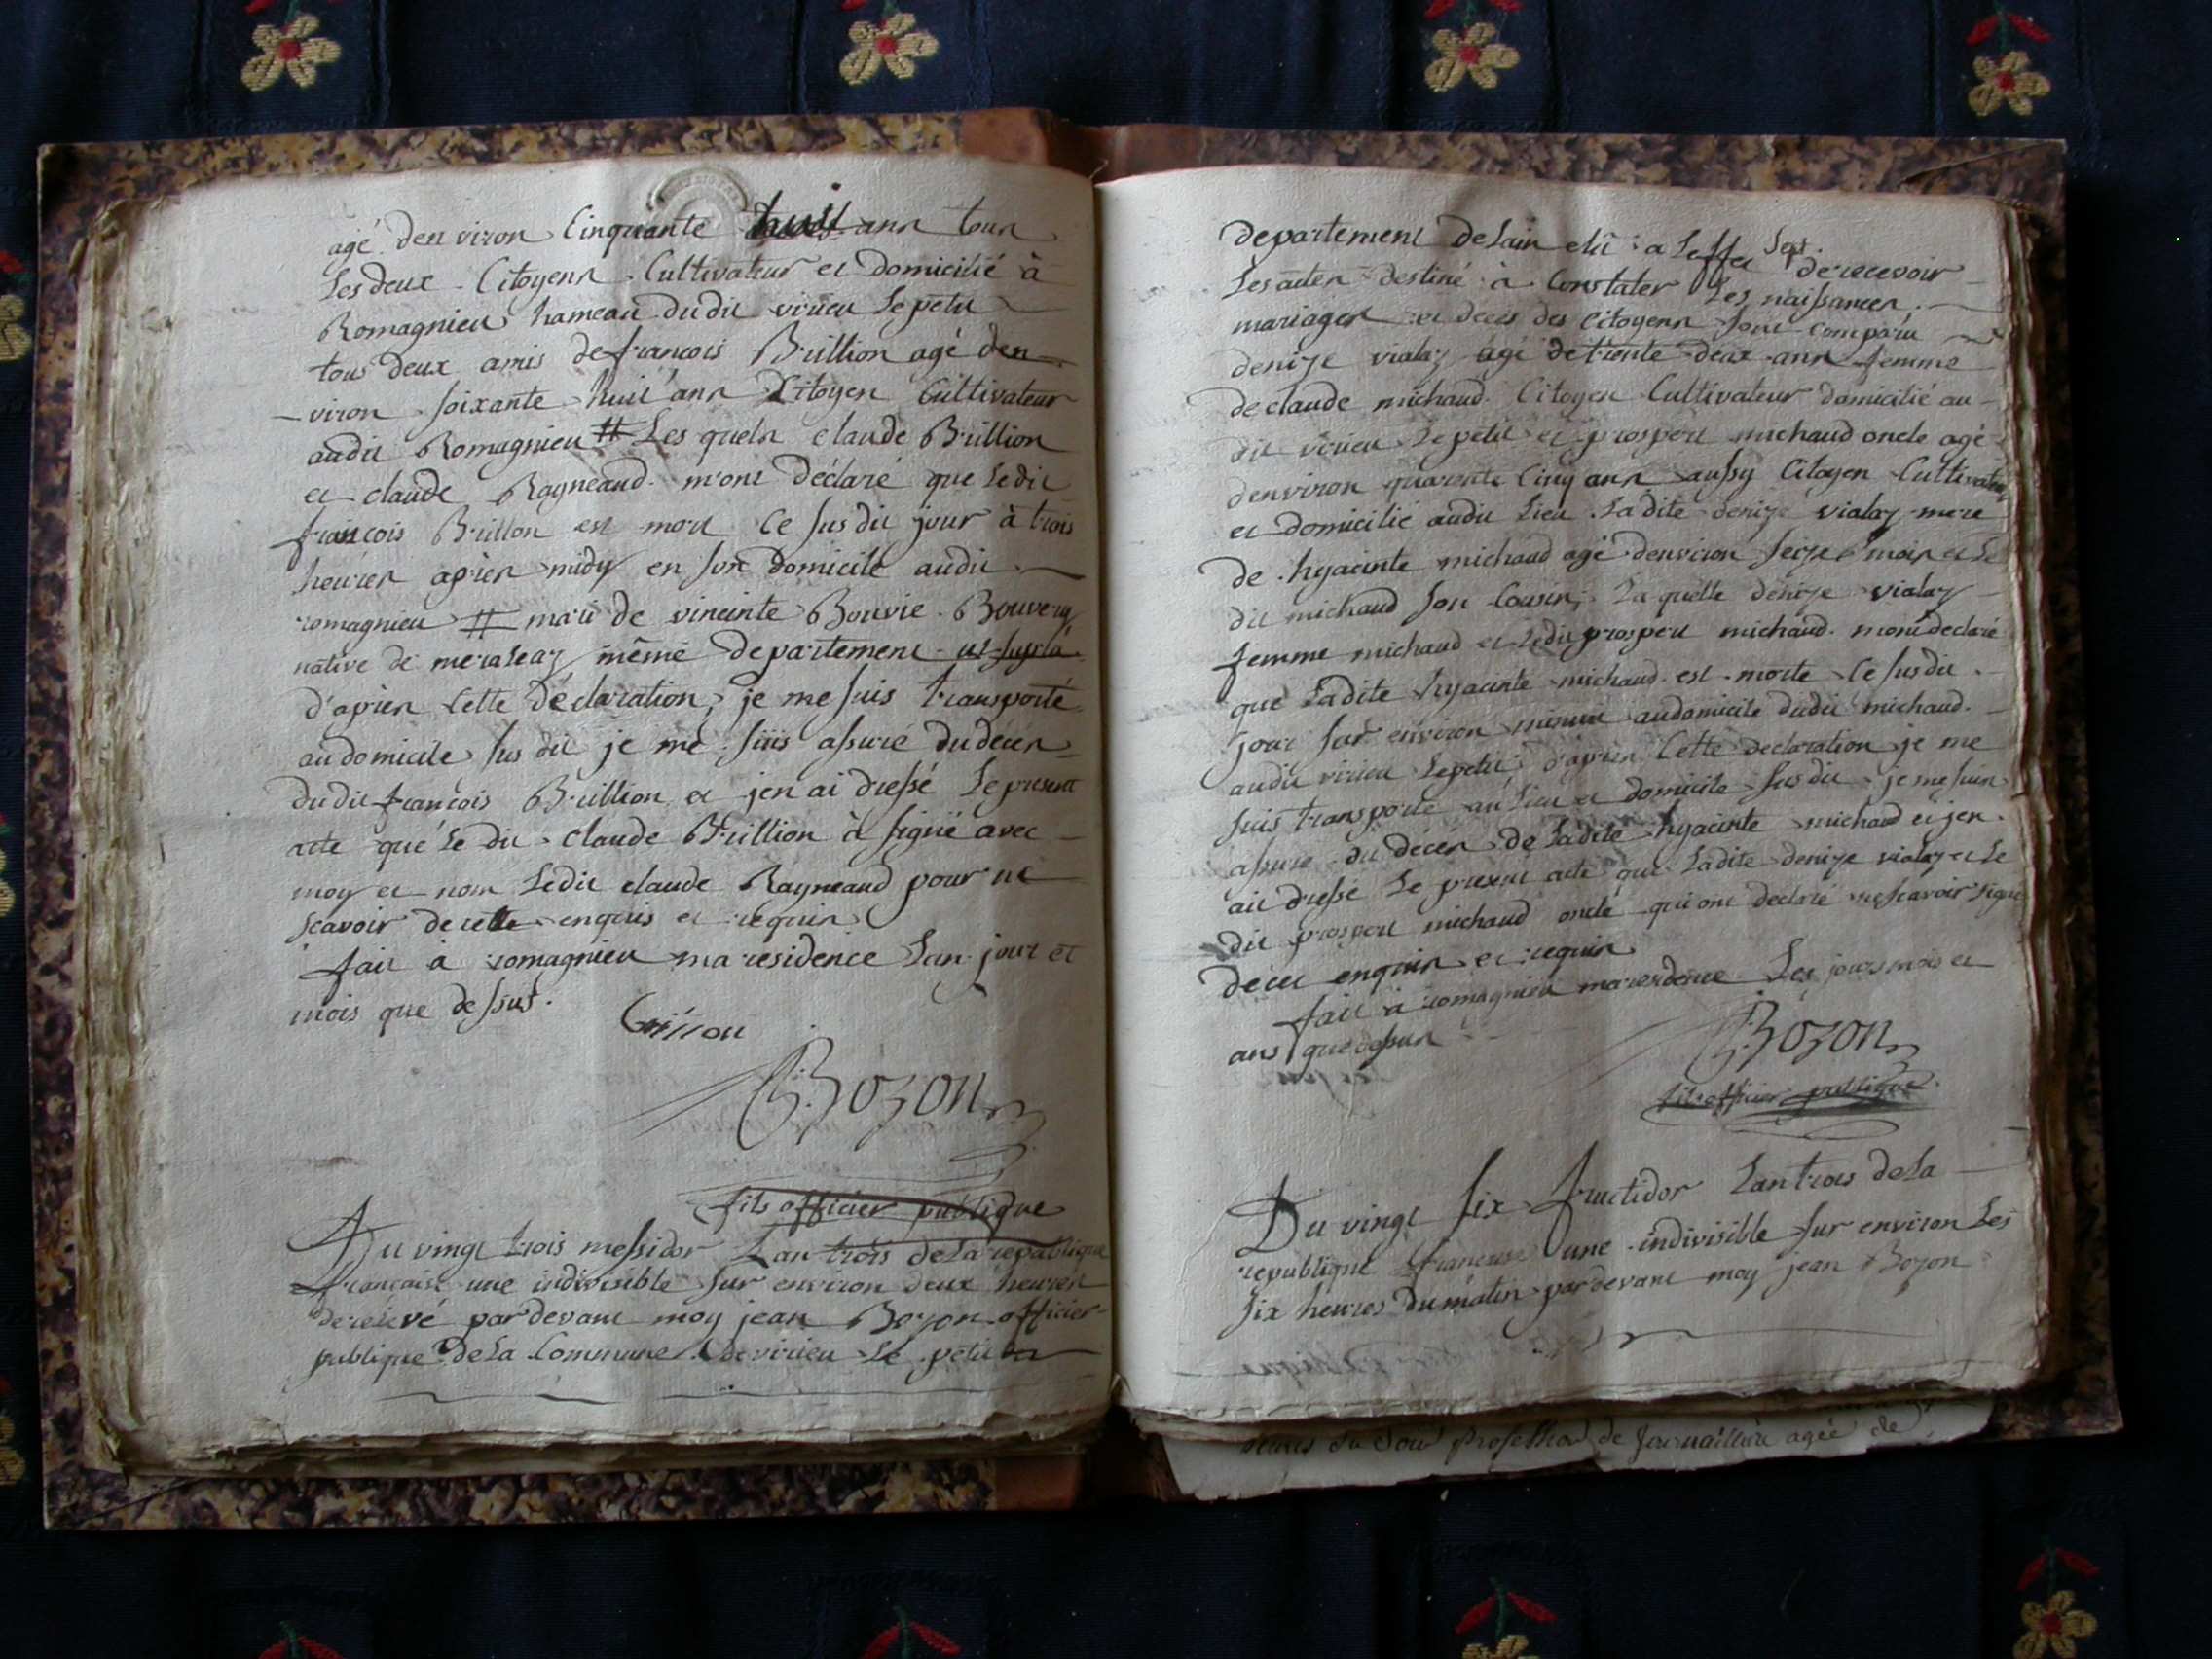 agé denviron Cinquante huit ans tous
Les deux Citoyens Cultivateur et domicilié à
Romagnieu hameau dudit virieu Le petit
tous deux amis de francois Brillion agé den
viron soixante huit ans Citoyen Cultivateur
audit Romagnieu # Les quels claude Brillion
et claude Ragneaud m'ont déclaré que Le dit
francois Brillon est mort Ce susdit jour à trois
heures après midy en son domicile audit
romagnieu # mari de vincinte Bonvie
native de même departement
d'après Cette déclaration, je me suis transporté
au domicile sus dit je me suis assuré du décès
dudit francois Brillion et jen ai dressé Le present
acte que Le dit claude Brillion à signé avec
moy et non Ledit claude Ragneaud pour ne
scavoir de cette enquis et requis
fait à romagnieu ma residence Lan jour et
mois que dessus.
Brillon
Bozon
fils officier publique
Du vingt trois messidor Lan trois de La republique
francaise une indivisible sur environ deux heures
de relevé pardevant moy jean Bozon officier
publique de La Commune de virieu Le petit
departement de Lain elû a Leffet de recevoir
Les actes destiné à Constater Les naissances
mariages et deces des Citoyens sont comparu
denize vialaz agé de trente deux ans femme
de claude michaud Citoyen Cultivateur domicilié au
dit virieu Le petit et prosper michaud oncle agé
denviron quarente Cinq ans aussy Citoyen Cultivateur
et domicilié audit Lieu Ladite denize vialaz mere
de hyacinte michaud agé denviron seize mois et Le
dit michaud son Cousin; La quelle denize vialaz
femme michaud et Ledit prosper michaud mont declaré
que Ladite hyacinte michaud est morte Ce susdit
jour sur environ minuit au domicile dudit michaud
audit virieu Le petit d'après Cette declaration je me
suis transporté au Lieu et domicile susdit je me suis
assuré du décès de Ladite hyacinte michaud et jen
ai dressé Le present acte que Ladite denize vialaz et Le
dit prosper michaud oncle qui ont declaré ne scavoir signé
de cet enquis et requis
fait à romagnieu ma residence Les jours mois et
ans que dessus
Bozon
fils officier publique
Du vingt six fructidor Lan trois de La
republique francaise une indivisible sur environ Les
six heures du matin pardevant moy jean Bozon
heures du soir profession de journaillière agée de